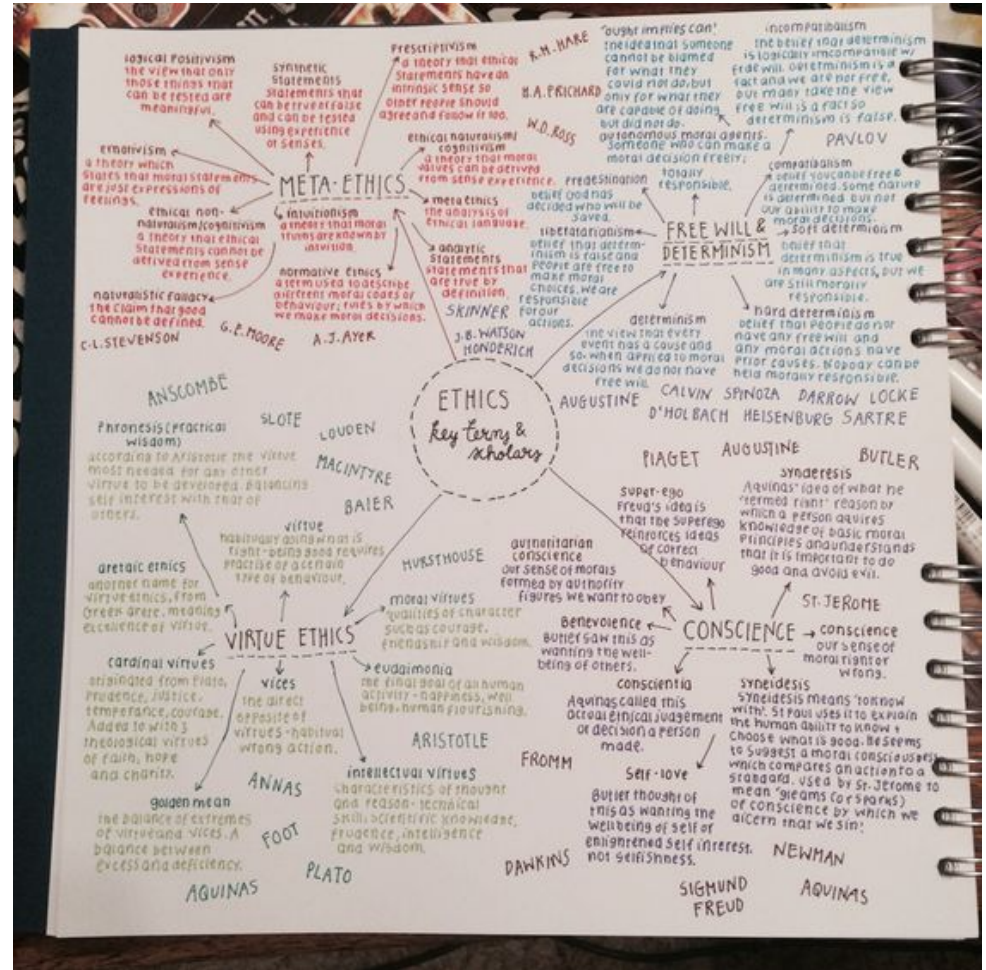 logical Positivism
the view that only
those things that
can be tested are
meaningful.
synthetic
statements
statements that
can be true or false
and can be tested
using experience
or senses.
Prescriptivism
a theory that ethical
statements have an
intrinsic sense so
other people should
agree and follow it too.
ethical naturalism/
cognitivism
a theory that moral
values can be derived
from sense experience.
emotivism
a theory which
states that moral statements
are just expressions of
feelings.
META-ETHICS
meta ethics
the analysis of
ethical language.
ethical non-
naturalism/cognitivism
a theory that ethical
statements cannot be
derived from sense
experience.
intuitionism
a theory that moral
truths are known by
intuition.
analytic
statements
statements that
are true by
definition.
normative ethics
a term used to describe
different moral codes of
behaviour; rules by which
we make moral decisions.
naturalistic fallacy
the claim that good
cannot be defined.
C.L.STEVENSON
G.E.MOORE
A.J.AYER
R.M.HARE
H.A.PRICHARD
W.D.ROSS
"ought implies can'
the idea that someone
cannot be blamed
for what they
could not do, but
only for what they
are capable of doing
but did not do.
autonomous moral agents.
someone who can make a
moral decision freely;
totally
responsible.
incompatibalism
the belief that determinism
is logically imcompatible w/
free will. Determinism is a
fact and we are not free,
but many take the view
free will is a fact so
determinism is false.
PAVLOV
Predestination
belief God has
decided who will be
saved.
compatibalism
belief you can be free &
determined. some nature
is determined but not
our ability to make
moral decisions.
FREE WILL &
DETERMINISM
libertatarianism
belief that determ-
inism is false and
people are free to
make moral
choices. we are
responsible
for our
actions.
soft determinism
belief that
determinism is true
in many aspects, but we
are still morally
responsible.
determinism
the view that every
event has a cause and
so, when applied to moral
decisions we do not have
free will
hard determinism
belief that people do not
have any free will and
any moral actions have
prior causes. Nobody can be
held morally responsible.
SKINNER
J.B.WATSON
HONDERICH
AUGUSTINE
CALVIN SPINOZA DARROW LOCKE
D'HOLBACH HEISENBURG SARTRE
ETHICS
key terms &
scholars
ANSCOMBE
SLOTE
LOUDEN
MACINTYRE
BAIER
HURSTHOUSE
Phronesis (practical
wisdom)
according to Aristotle the virtue
most needed for any other
virtue to be developed. Balancing
self interest with that of
others.
virtue
habitually doing what is
right-being good requires
practise of a certain
type of behaviour.
aretaic ethics
another name for
virtue ethics, from
Greek arete, meaning
excellence of virtue.
VIRTUE ETHICS
moral virtues
qualities of character
such as courage,
friendship and wisdom.
cardinal virtues
originated from Plato,
Prudence, justice,
temperance, courage.
Added to with 3
theological virtues
of faith, hope
and charity.
vices
the direct
opposite of
virtues-habitual
wrong action.
eudaimonia
the final goal of all human
activity - happiness, well
being, human flourishing.
ARISTOTLE
golden mean
the balance of extremes
of virtue and vices. A
balance between
excess and deficiency.
intellectual virtues
characteristics of thought
and reason- technical
skill, scientific knowledge,
prudence, intelligence
and wisdom.
ANNAS
FOOT
AQUINAS
PLATO
PIAGET
AUGUSTINE
BUTLER
super-ego
Freud's idea is
that the superego
reinforces ideas
of correct
behaviour
synderesis
Aquinas' idea of what he
'termed right' reason by
which a person aquires
knowledge of basic moral
principles and understands
that it is important to do
good and avoid evil.
authoritarian
conscience
our sense of morals
formed by authority
figures we want to obey
ST.JEROME
Benevolence
Butler saw this as
wanting the well-
being of others.
CONSCIENCE
conscience
our sense of
moral right or
wrong.
conscientia
Aquinas called this
actual ethical judgement
or decision a person
made.
syneidesis
syneidesis means 'to know
with'. St Paul uses it to explain
the human ability to know +
choose what is good. He seems
to suggest a moral consciousness
which compares an action to a
standard. used by St.Jerome to
mean "gleams (or sparks)
of conscience by which we
dicern that we sin!
FROMM
self-love
Butler thought of
this as wanting the
wellbeing of self or
enlightened self interest.
not selfishness.
DAWKINS
NEWMAN
SIGMUND
FREUD
AQUINAS